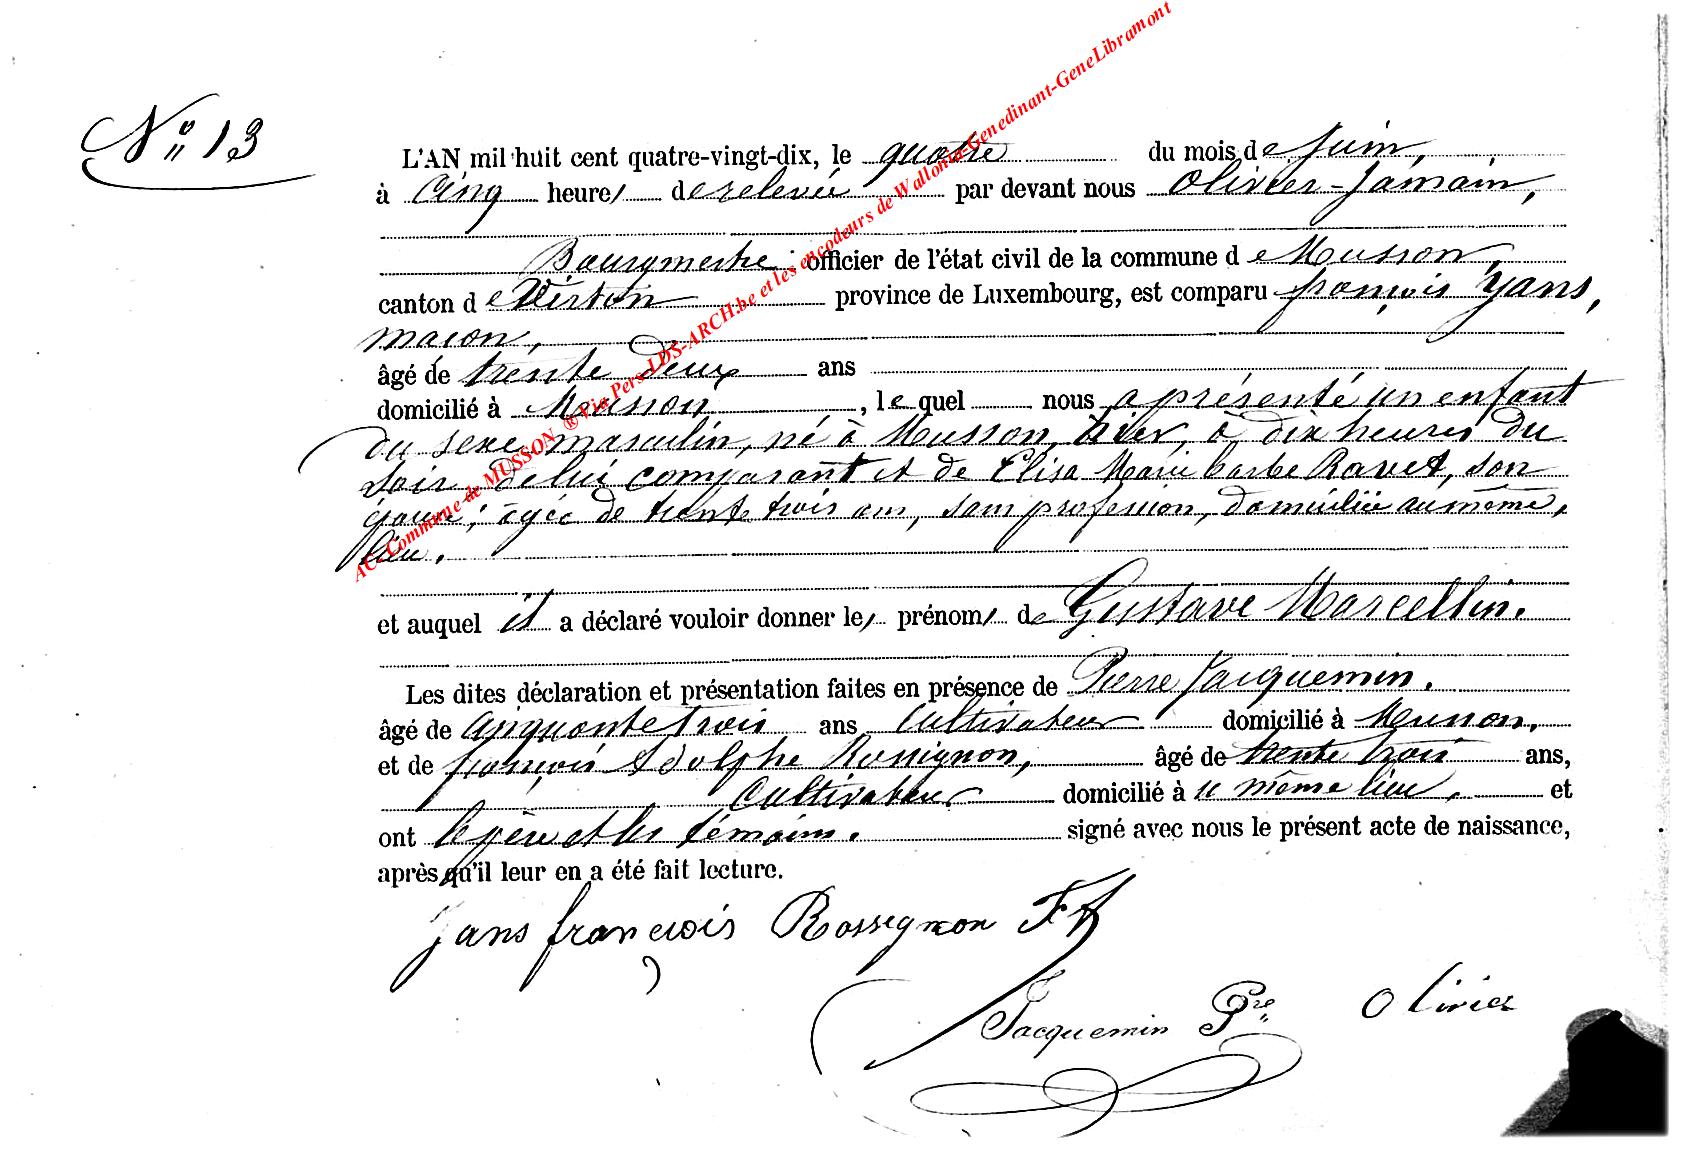 N° 13
L'AN mil huit cent quatre-vingt-dix, le quatre du mois de Juin,
à Cinq heures de relevée par devant nous Olivier-Jamain,
Bourgmestre officier de l'état civil de la commune de Musson,
canton de Virton province de Luxembourg, est comparu françois Yans,
maçon,
âgé de trente deux ans
domicilié à Musson, lequel nous a présenté un enfant
du sexe masculin, né à Musson, hier, à dix heures du
soir, de lui comparant et de Elisa Marie barbe Ravet, son
épouse, âgée de trente trois ans, sans profession, domiciliée au même
lieu.
et auquel il a déclaré vouloir donner les prénoms de Gustave Marcellin.
Les dites déclaration et présentation faites en présence de Pierre Jacquemin.
âgé de cinquante trois ans Cultivateur domicilié à Musson.
et de françois Adolphe Rossignon, âgé de trente trois ans,
Cultivateur domicilié à le même lieu. et
ont le père et les témoins. signé avec nous le présent acte de naissance,
après qu'il leur en a été fait lecture.
Yans françois Rossignon F A
Jacquemin Pre Olivier
AC-Commune de MUSSON ®Via Pers-LDS-ARCH.be et les encodeurs de Wallonia-Genedinant-GeneLibramont